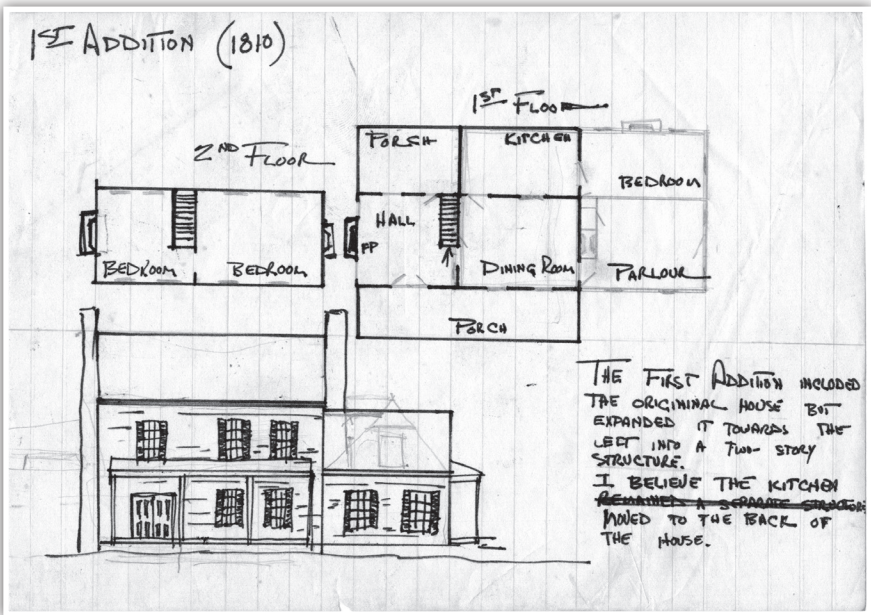 1ST ADDITION (1810)
1ST FLOOR
2ND FLOOR
PORCH
KITCHEN
BEDROOM
HALL
FP
BEDROOM
BEDROOM
DINING ROOM
PARLOUR
PORCH
THE FIRST ADDITION INCLUDED
THE ORIGIMINAL HOUSE BUT
EXPANDED IT TOWARDS THE
LEFT INTO A TWO-STORY
STRUCTURE.
I BELIEVE THE KITCHEN
REMAINED A SEPARATE STRUCTURE
MOVED TO THE BACK OF
THE HOUSE.